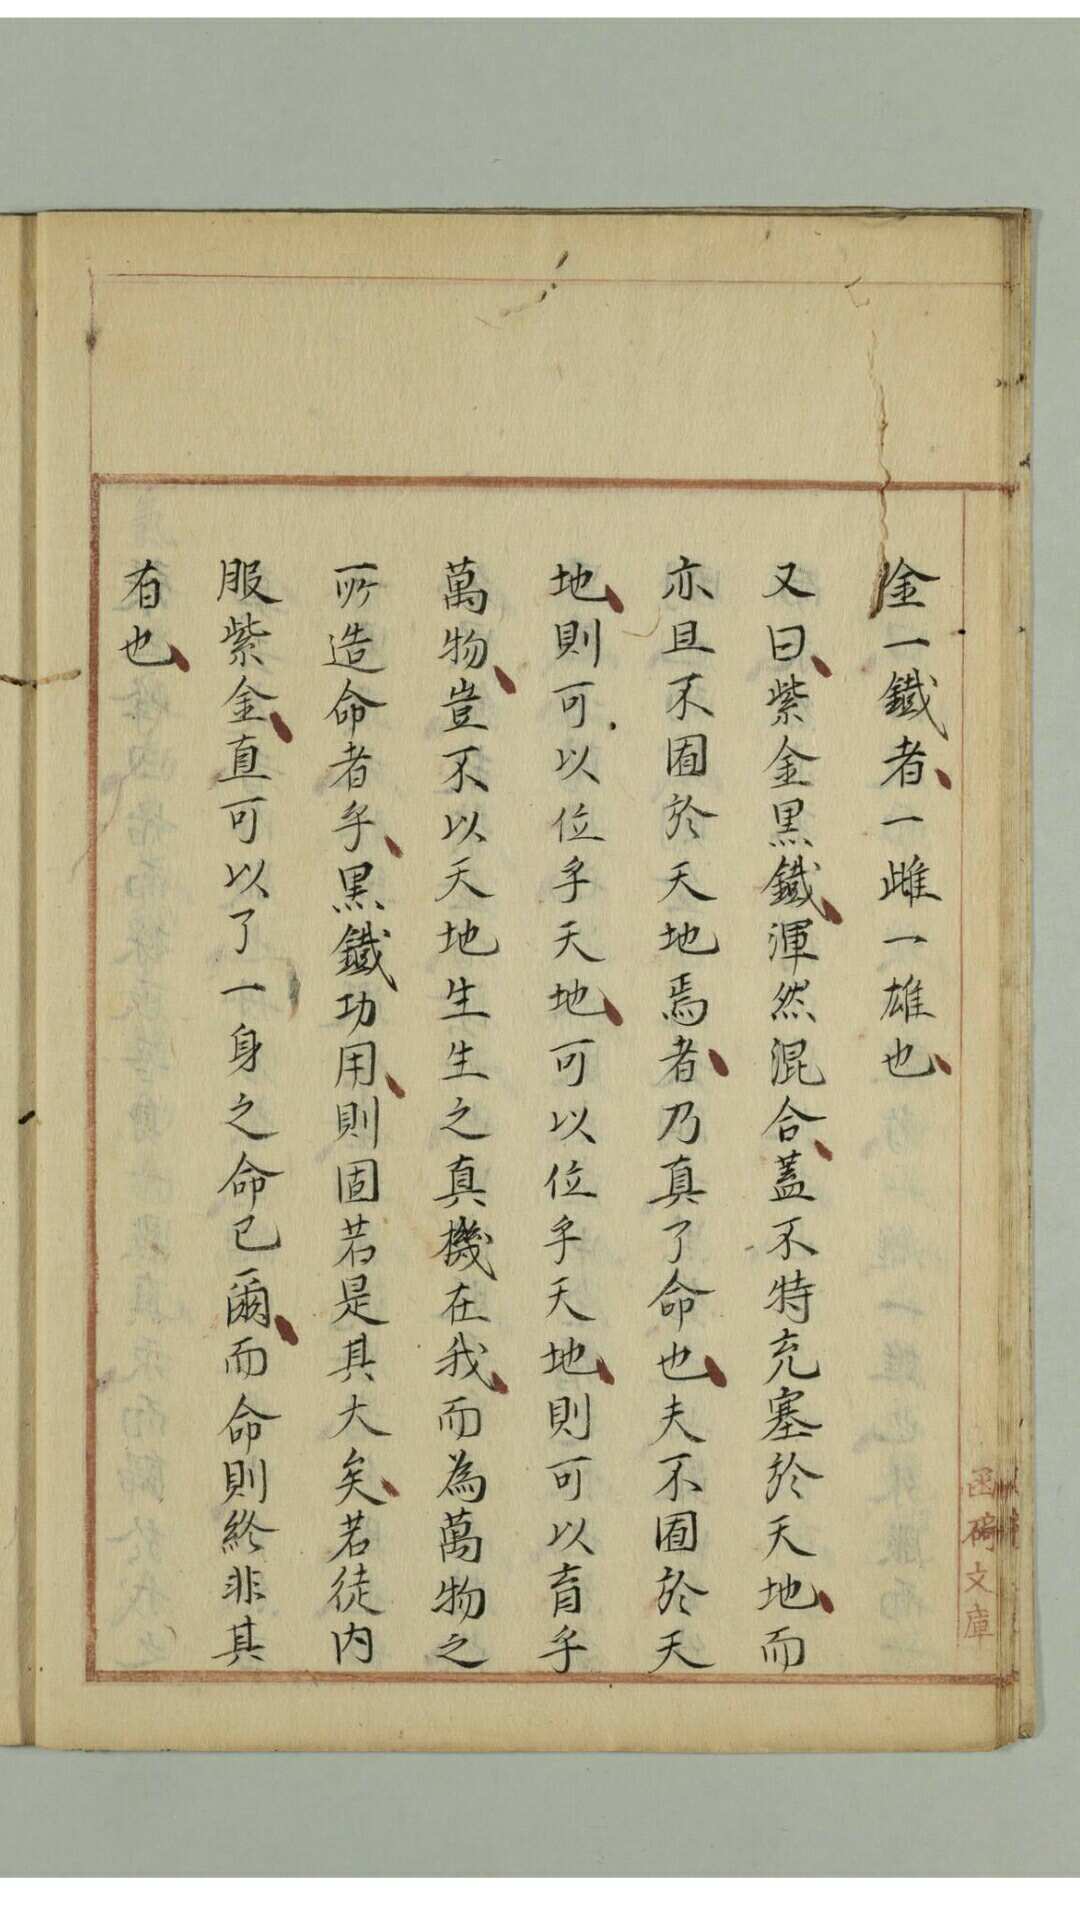 金一鐵者一雌一雄也
又曰紫金黑鐵渾然混合蓋不特充塞於天地而
亦且不囿於天地焉者乃真了命也夫不囿於天
地則可以位乎天地可以位乎天地則可以育乎
萬物豈不以天地生生之真機在我而為萬物之
所造命者乎黑鐵功用則固若是其大矣若徒內
服紫金直可以了一身之命已爾而命則終非其
有也
文庫